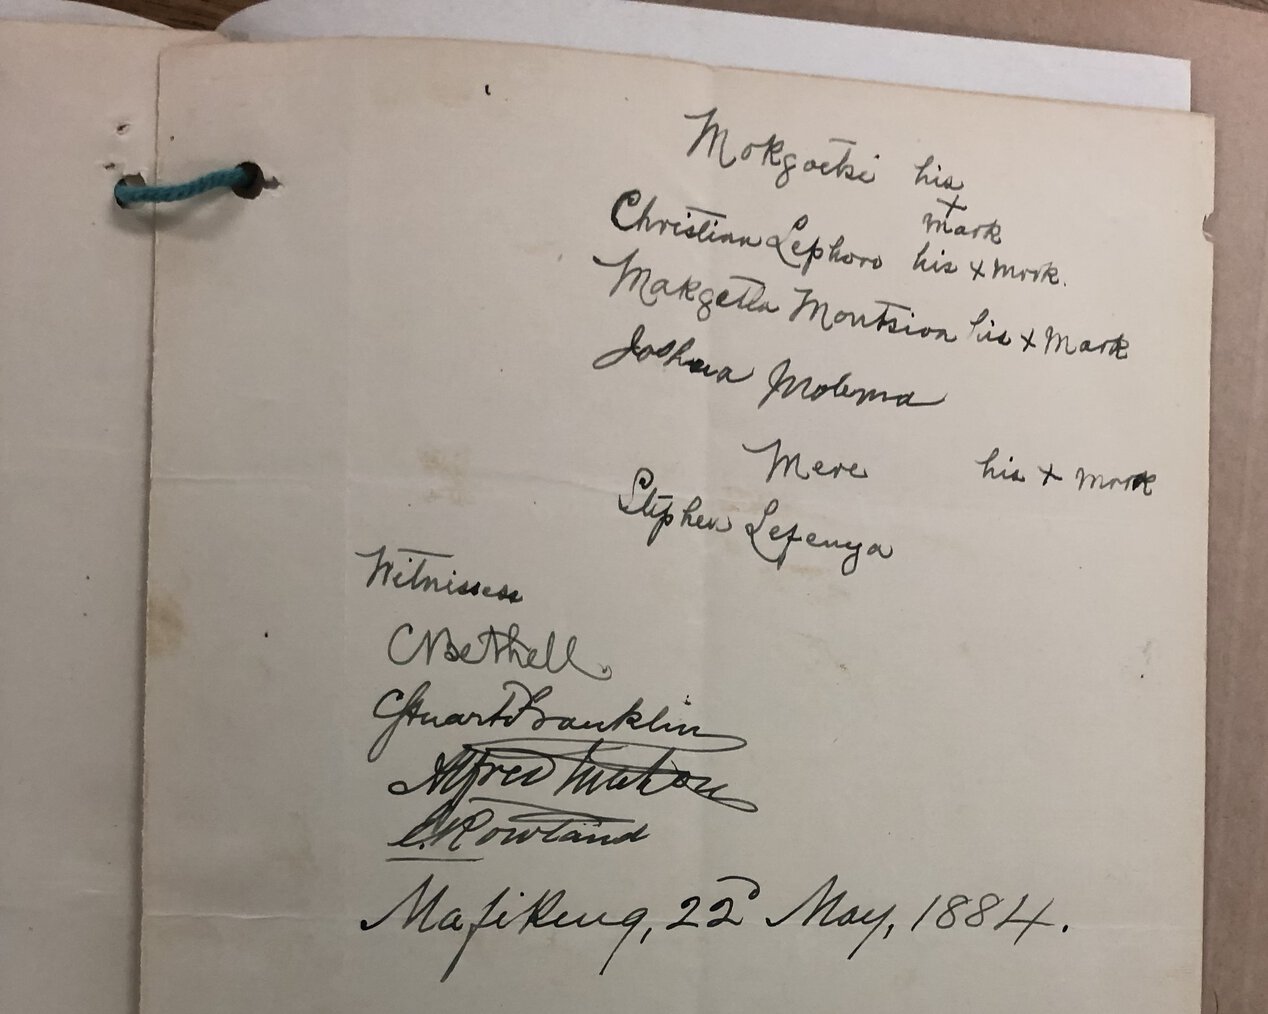 Mokgoetsi his
x
mark
Christian Lephoro his x mark.
Makgetla Montsioa his x Mark
Joshua Molema
Mere his x mark
Stephen Lefenya
Witnesses
C Bethell.
C Stuart Franklin
Alfred
C. Rowland
Mafikeng, 22d May, 1884.